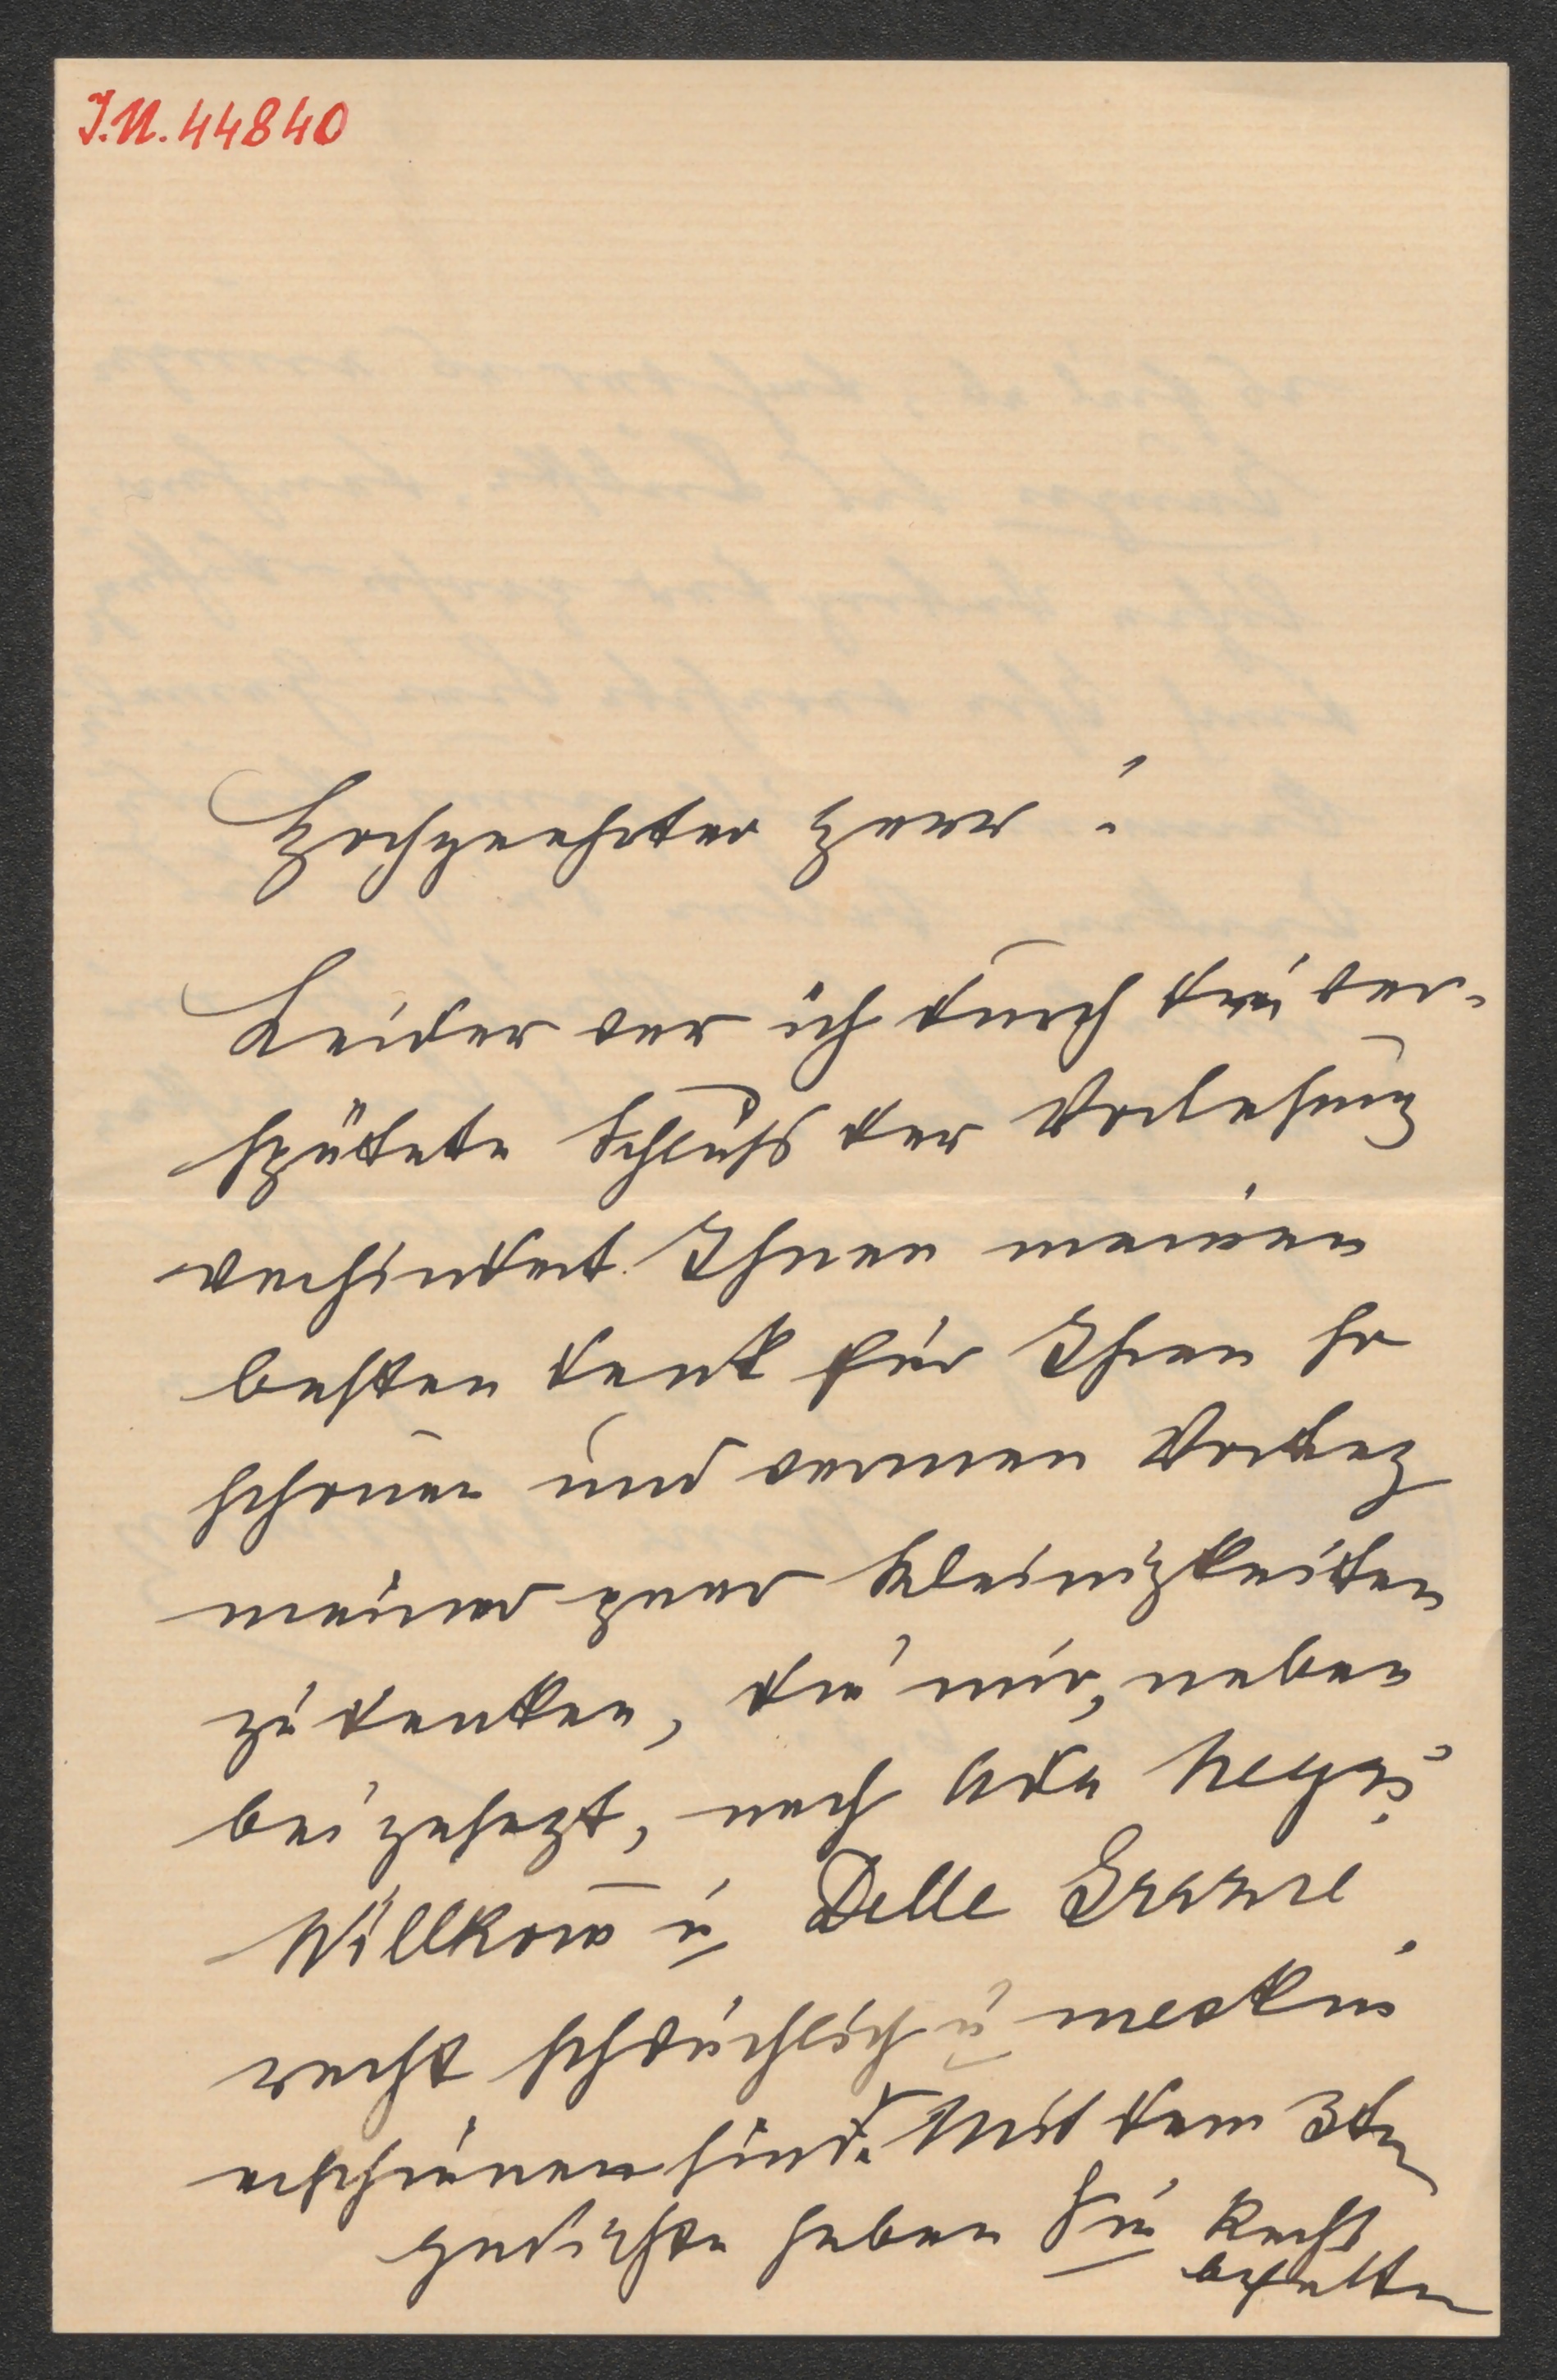 J.N. 44840
Hochgeehrter Herr!
Leider war ich durch die ver-
spätete Schluß der Vorlesung
verhindert Ihnen meinen
besten Dank für Ihren so
schönen und warmen Vortrag
meiner paar Kleinigkeiten
zu danken, die mir, neben
bei gesagt, nach Ada Negri,
Willkom̅ u. Delle Grazie
recht schwächlich u
erschienen sind. Mit dem 3ten
Gedichte haben Sie Recht
behalten